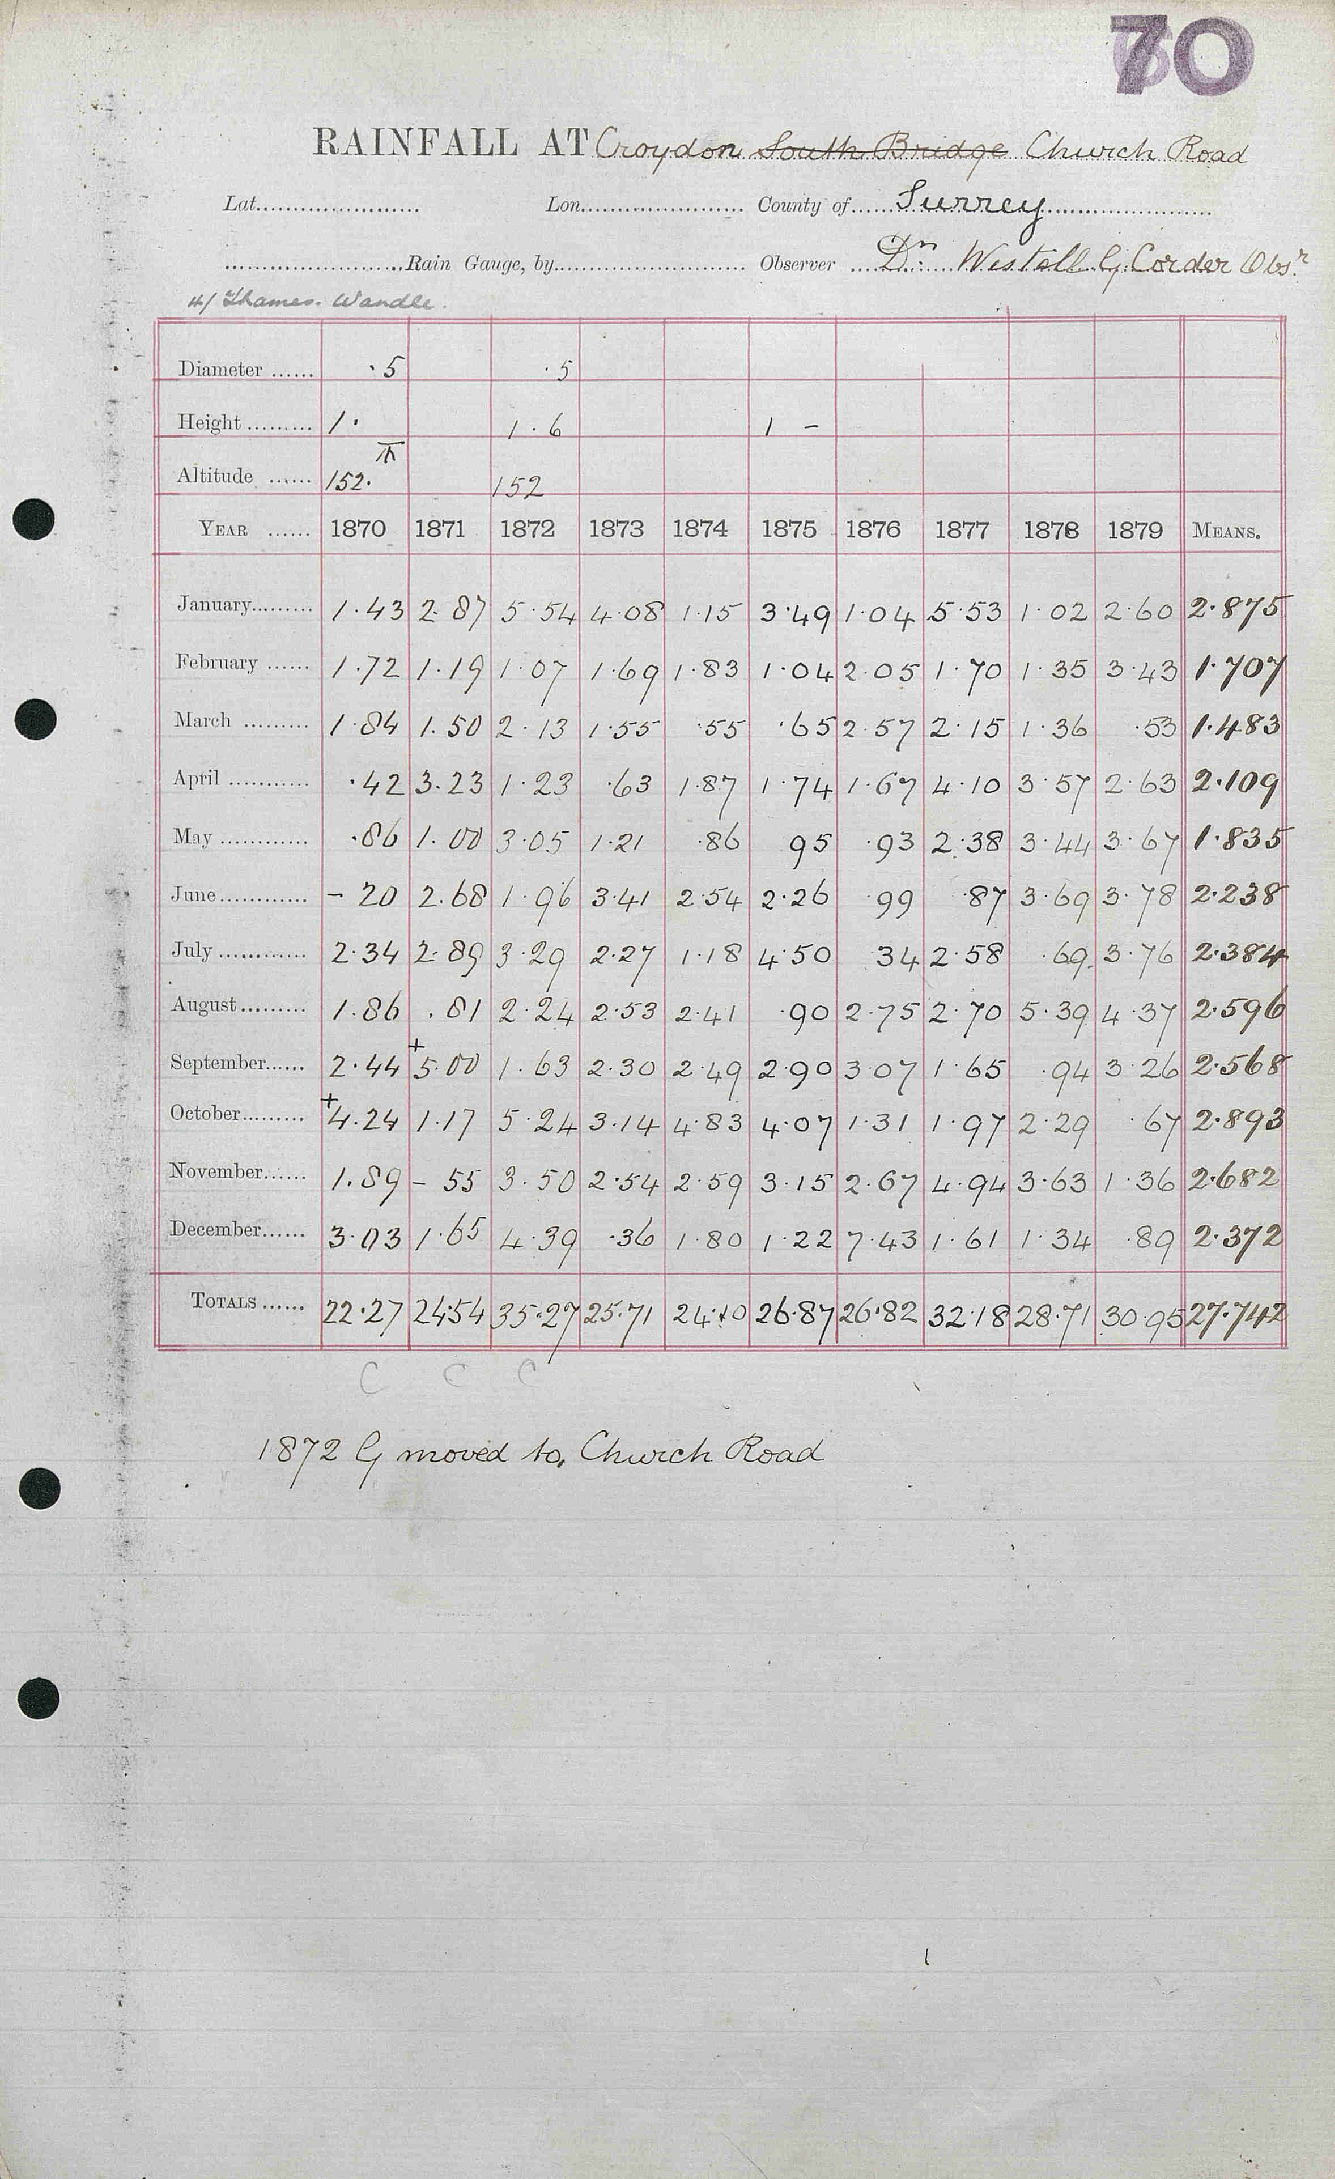 70
RAINFALL AT Croydon South Bridge Church Road
Lat. Lon. County of Surrey
Rain Gauge, by Observer Dr. Westall G. Corder Obsr.
4/ Thames. Wandle.
Diameter ...... ·5 ·5
Height ......... 1· 1·6 1 -
Altitude ...... 152. 152
YEAR ...... 1870 1871 1872 1873 1874 1875 1876 1877 1878 1879 MEANS.
January......... 1.43 2.87 5.54 4.08 1.15 3.49 1.04 5.53 1.02 2.60 2.875
February ...... 1.72 1.19 1.07 1.69 1.83 1.04 2.05 1.70 1.35 3.43 1.707
March ......... 1.84 1.50 2.13 1.55 .55 .65 2.57 2.15 1.36 .53 1.483
April ........... .42 3.23 1.23 .63 1.87 1.74 1.67 4.10 3.57 2.63 2.109
May ............ .86 1.00 3.05 1.21 .86 95 .93 2.38 3.44 3.67 1.835
June............ - 20 2.68 1.96 3.41 2.54 2.26 .99 .87 3.69 3.78 2.238
July ............ 2.34 2.89 3.29 2.27 1.18 4.50 34 2.58 .69 3.76 2.384
August......... 1.86 .81 2.24 2.53 2.41 .90 2.75 2.70 5.39 4.37 2.596
September...... 2.44 +5.00 1.63 2.30 2.49 2.90 3.07 1.65 .94 3.26 2.568
October......... +4.24 1.17 5.24 3.14 4.83 4.07 1.31 1.97 2.29 .67 2.893
November...... 1.89 - 55 3.50 2.54 2.59 3.15 2.67 4.94 3.63 1.36 2.682
December...... 3.03 1.65 4.39 .36 1.80 1.22 7.43 1.61 1.34 .89 2.372
TOTALS ...... 22.27 24.54 35.27 25.71 24.10 26.87 26.82 32.18 28.71 30.95 27.742
C C C
1872 G moved to Church Road